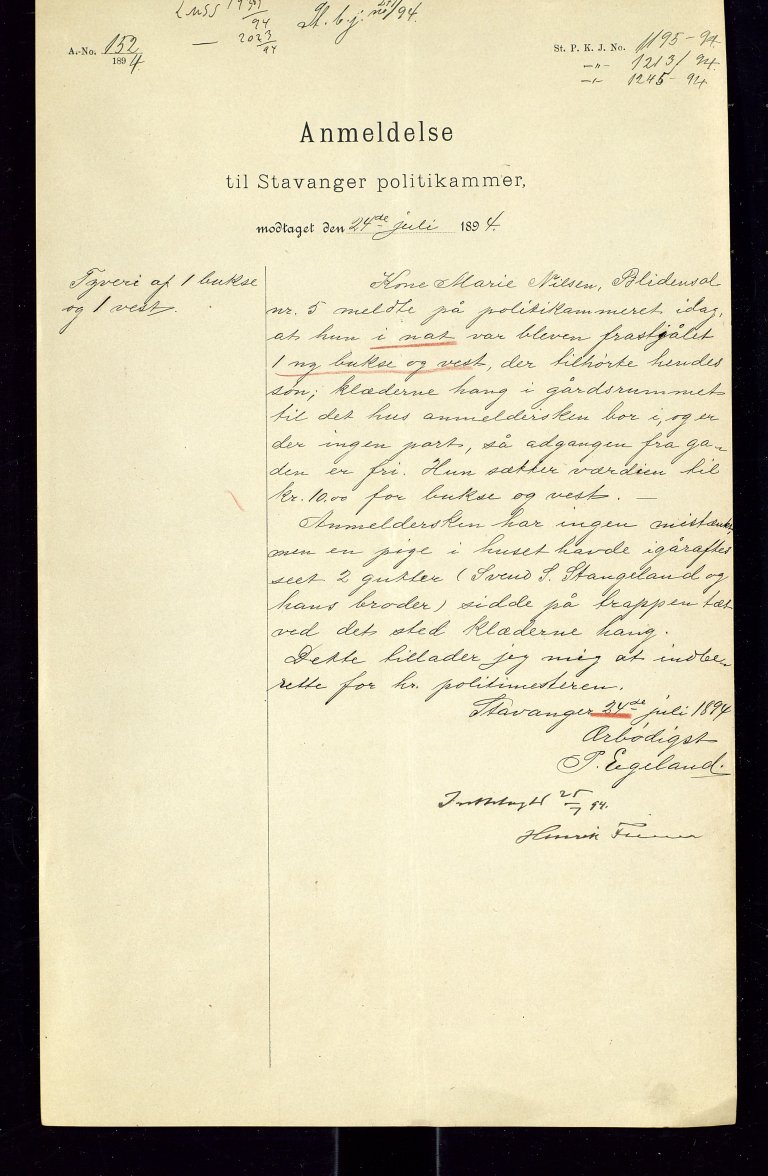 94
— 2023/94
A.-No. 152
1894
St. P. K. J. No. 1195-94
—„— 1213/94
—„— 1245-94
Anmeldelse
til Stavanger politikammer,
modtaget den 24de juli 1894.
Tyveri af 1 bukse
og 1 vest.
Kone Marie Nilsen, Blidensol
nr. 5 meldte på politikammeret idag,
at hun i nat var bleven frastjålet
1 ny bukse og vest, der tilhørte hendes
søn; klæderne hang i gårdsrummet
til det hus anmeldersken bor i, og er
der ingen port, så adgangen fra ga-
den er fri. Hun sætter værdien til
kr. 10.00 for bukse og vest. —
Anmeldersken har ingen mistænkt,
men en pige i huset havde igåraftes
seet 2 gutter (Svend S. Stangeland og
hans broder) sidde på trappen tæt
ved det sted klæderne hang.
Dette tillader jeg mig at indbe-
rette for hr. politimesteren.
Stavanger 24de juli 1894
Ærbødigst
P. Egeland.
25/7 94.
Henrik